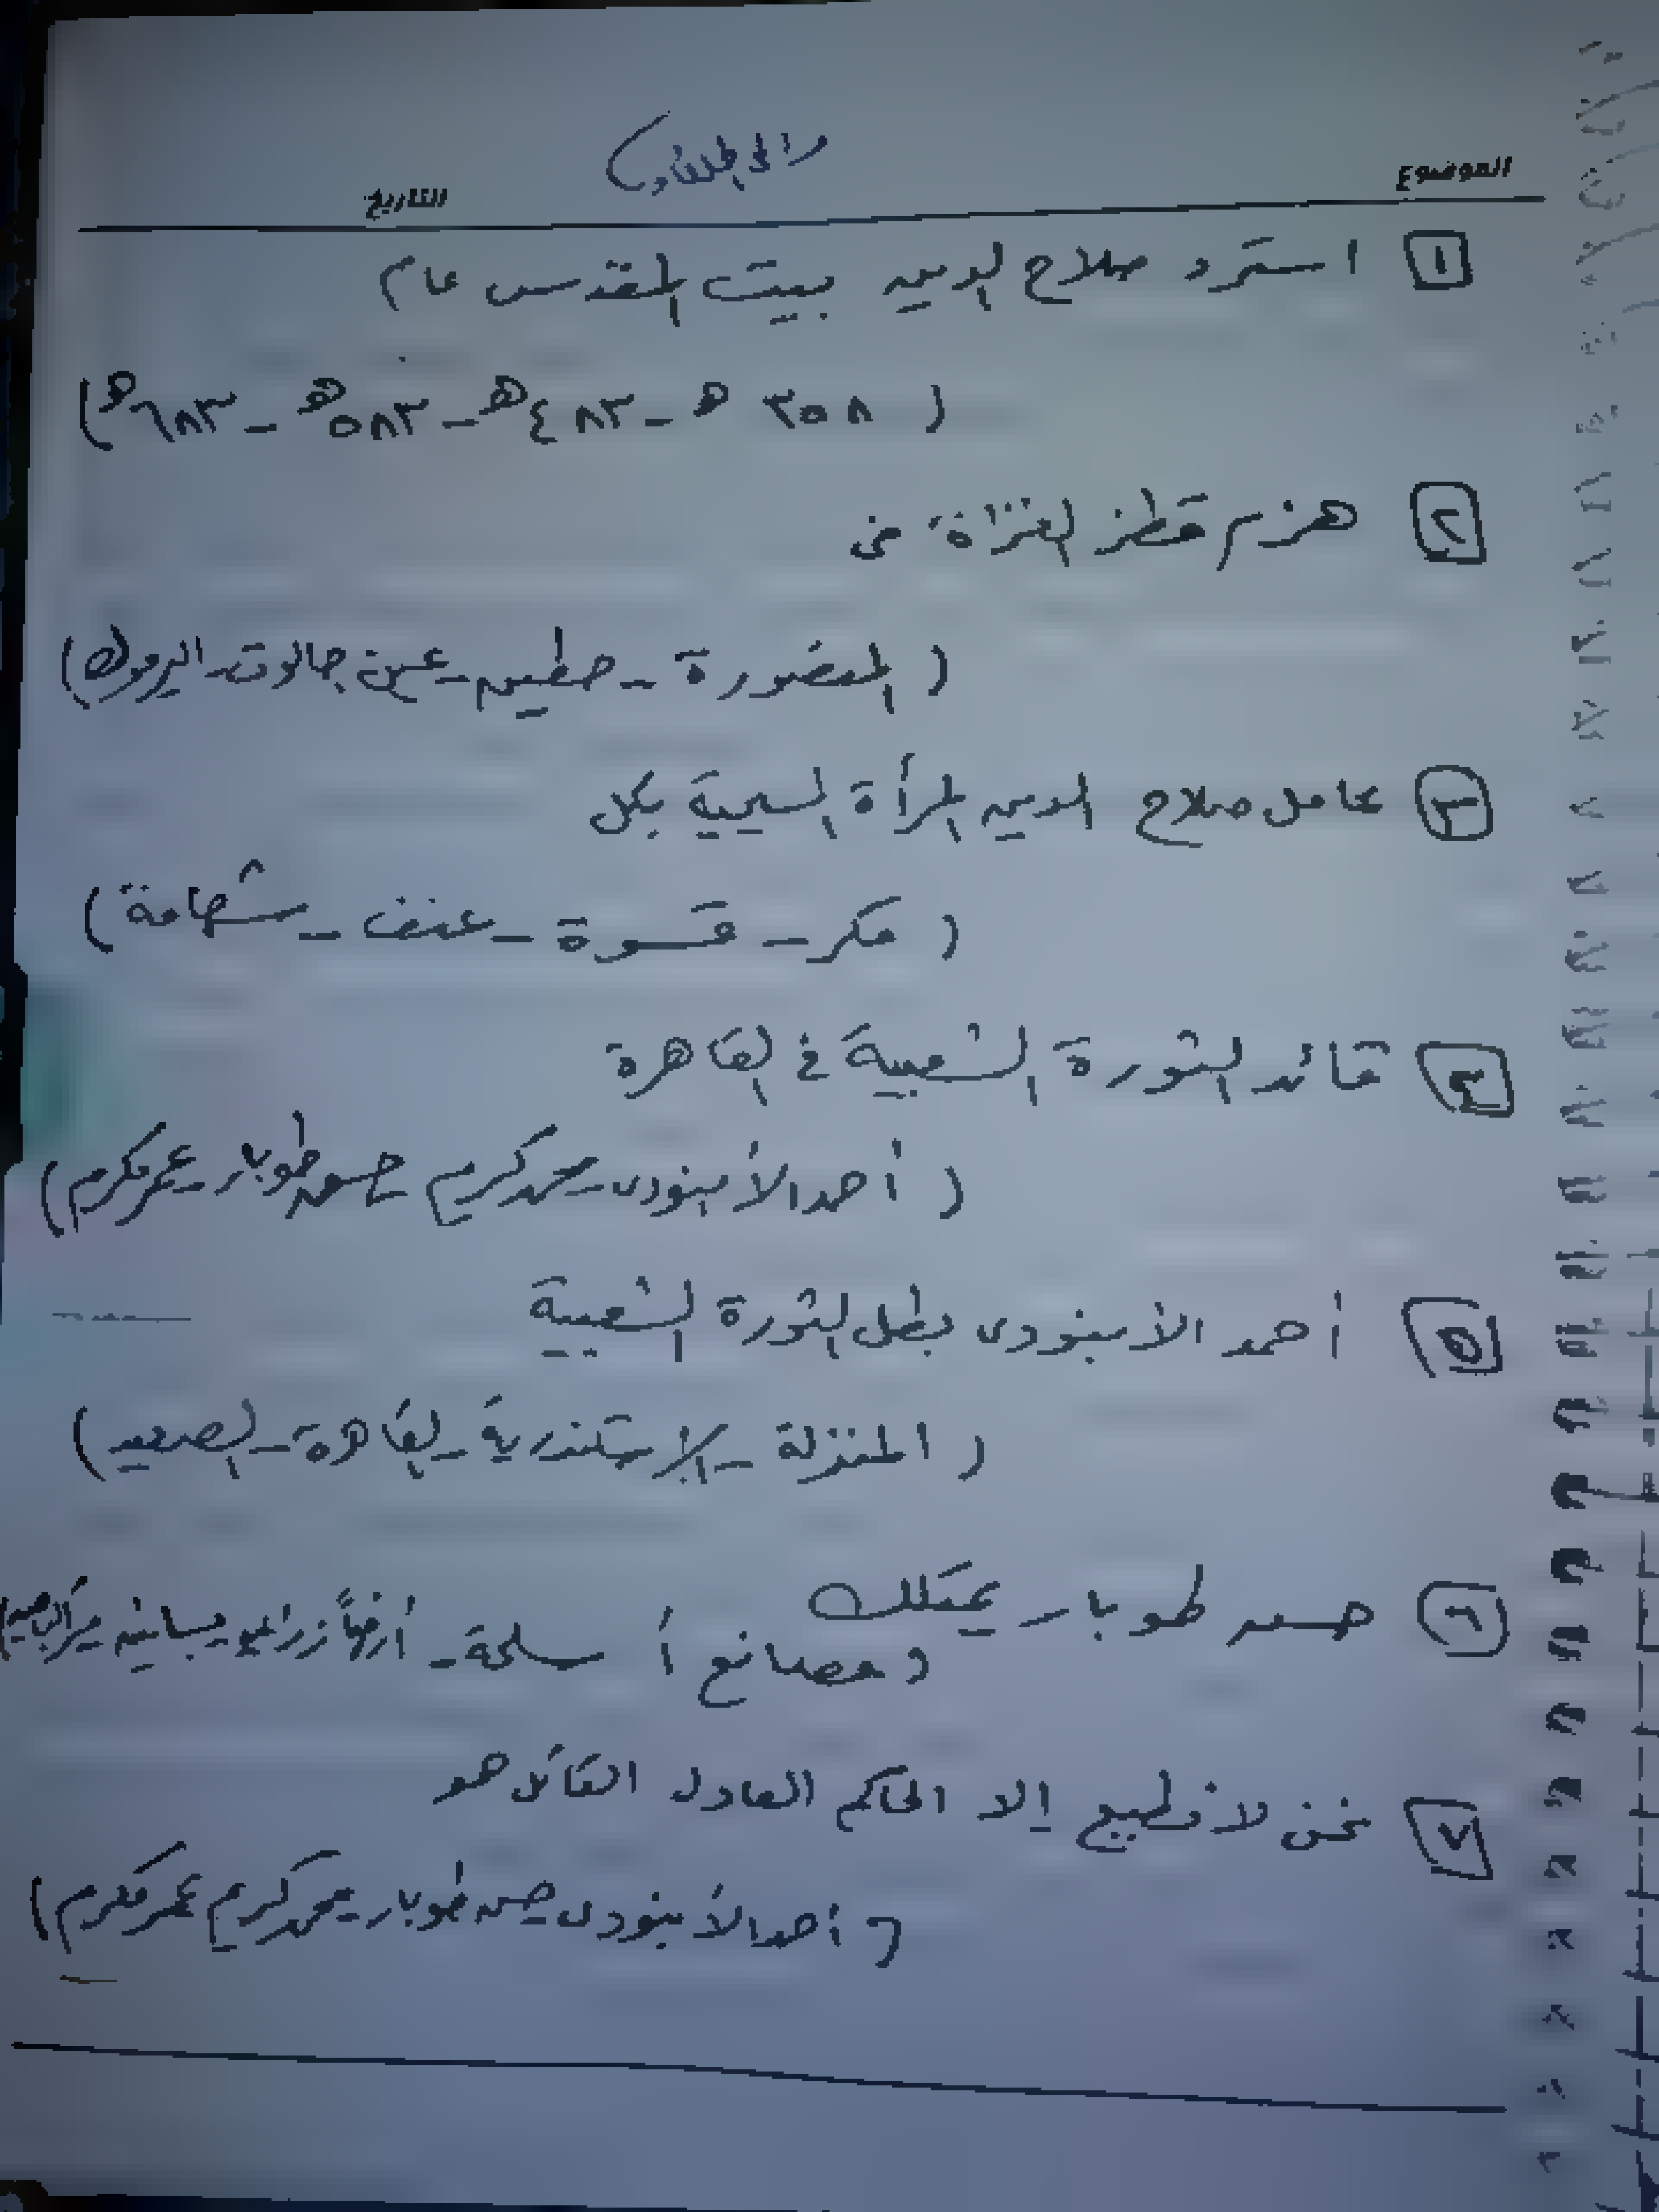 الموضوع
التاريخ
١ استرد صلاح الدين بيت المقدس عام
( ٣٥٨ هـ - ٤٨٣ هـ - ٥٨٣ هـ - ٦٨٣ هـ )
٢ هزم قطز الغزاة فى
( المنصورة - حطين - عين جالوت - اليرموك )
٣ عامل صلاح الدين المرأة المسيحية بكل
( مكر - قسوة - عنف - شهامة )
٤ قائد الثورة الشعبية فى القاهرة
( أحمد الأبنودى - محمد كريم - حسن طوبار - عمر مكرم )
٥ أحمد الأبنودى بطل الثورة الشعبية
( المنزلة - الإسكندرية - القاهرة - الصعيد )
٦ حسن طوبار يمتلك
( مصانع أسلحة - أرضاً زراعية - بساتين -
٧ نحن لا نطيع إلا الحاكم العادل القائل هو
( أحمد الأبنودى - حسن طوبار - محمد كريم - عمر مكرم )